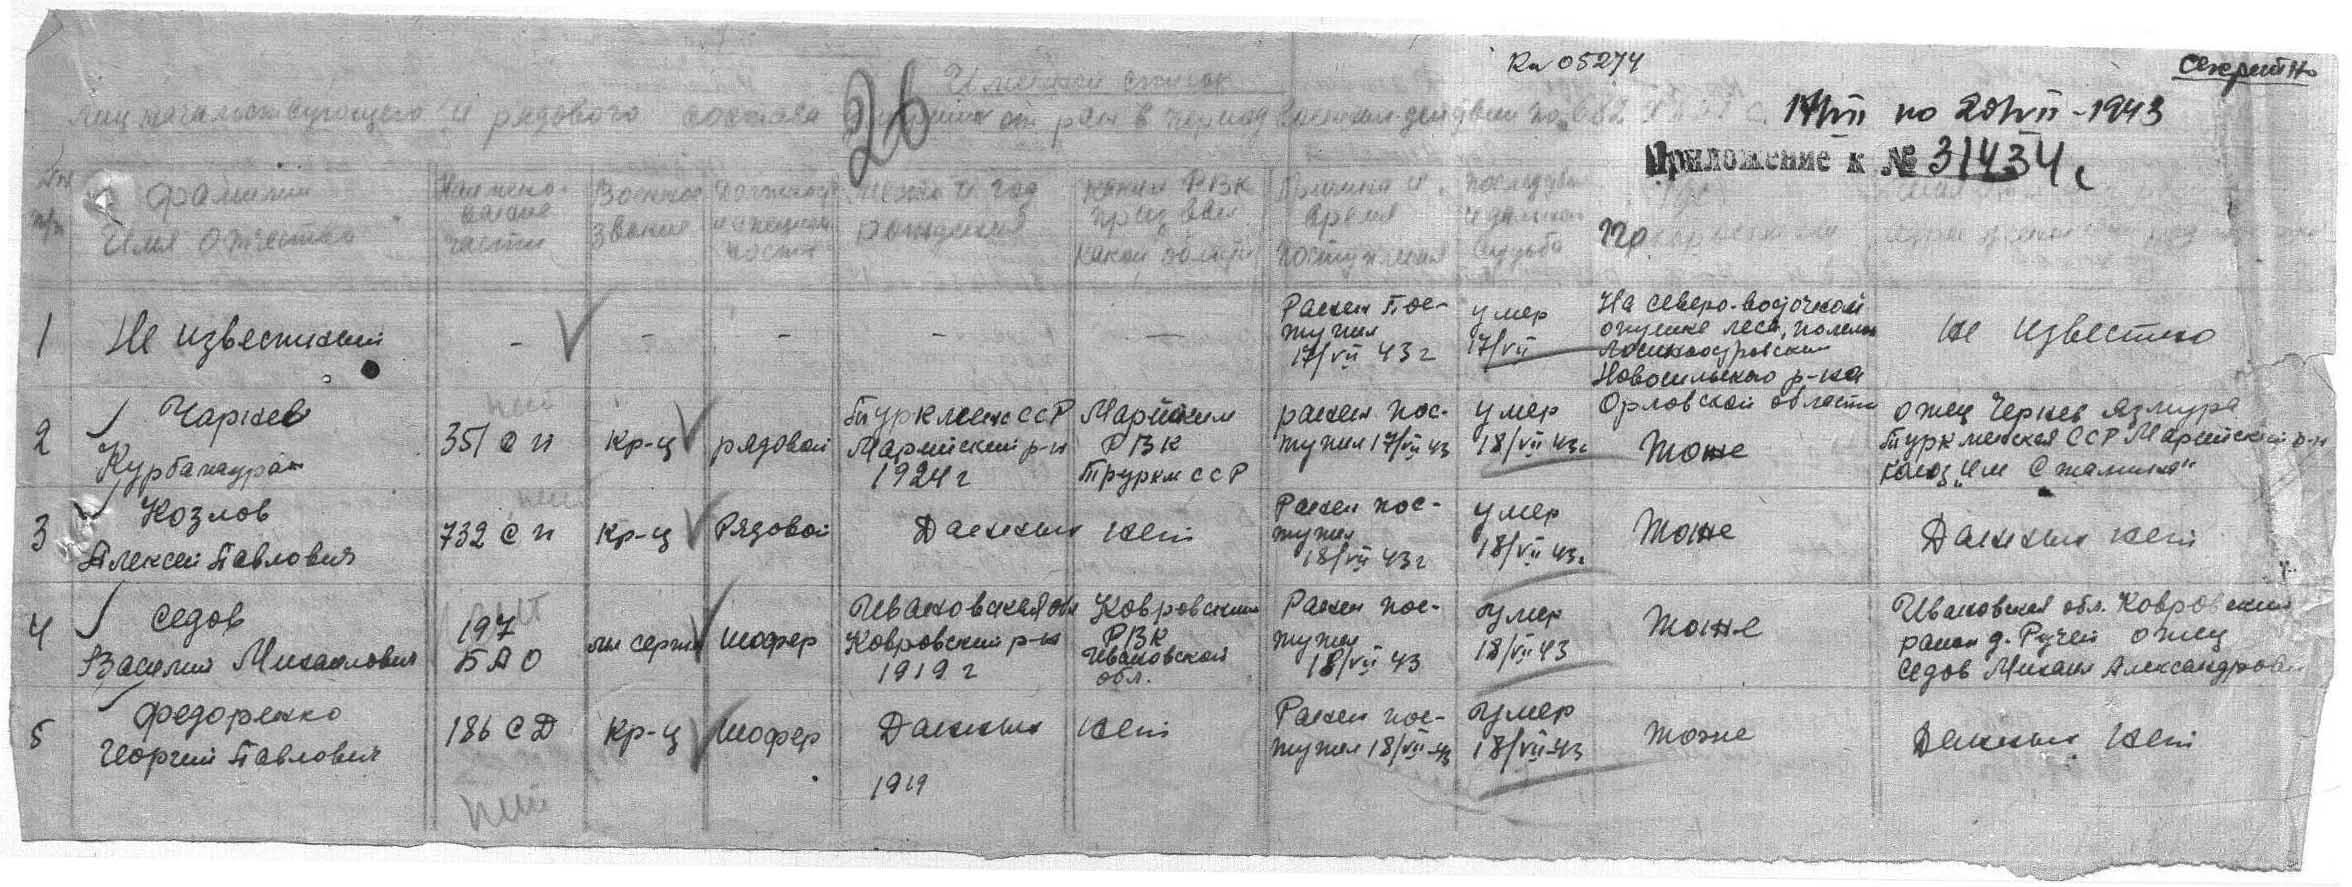 Вх 05274
Секретно
26
Именной список
лиц начальствующего и рядового состава от ран в период с 17/VII по 20/VII-1943
Приложение к № 31434с
Фамилия Имя Отчество
Наименование части
Военное звание
Должность и специальность
Место и год рождения
Каким РВК призван какой области
Причина и время поступления
судьба
1
Не известный
-
-
-
-
-
Ранен Пос-
тупил
17/VII 43 г
умер
17/VII
На северо-восточной
опушке леса,
Новосильского р-на
Орловской области
Не известно
2
Чариев
351 С П
Кр-ц
рядовой
Туркмен ССР
Марийский р-н
1924 г
Марийским
РВК
Труркм ССР
ранен пос-
тупил 17/VII 43
умер
18/VII 43г
Тоже
отец Чернев
Туркменская ССР Марийский р-н
колхоз "Им Сталина"
3
Козлов
Алексей Павлович
732 С П
Кр-ц
Рядовой
Данных нет
Ранен пос-
тупил
18/VII 43 г
умер
18/VII 43г
Тоже
Данных нет
4
Седов
Василий Михайлович
197
БАО
мл сержн
шофер
Ивановская обл
Ковровский р-н
1919 г
Ковровским
РВК
Ивановской
обл.
Ранен пос-
тупил
18/VII 43
умер
18/VII 43
Тоже
Ивановская обл. Ковровский
район д. Ручей отец
Седов Михаил Александрович
5
Федоренко
Георгий Павлович
186 СД
Кр-ц
Шофер
Данных нет
1919
Ранен пос-
тупил 18/VII-43
умер
18/VII-43
Тоже
Данных нет